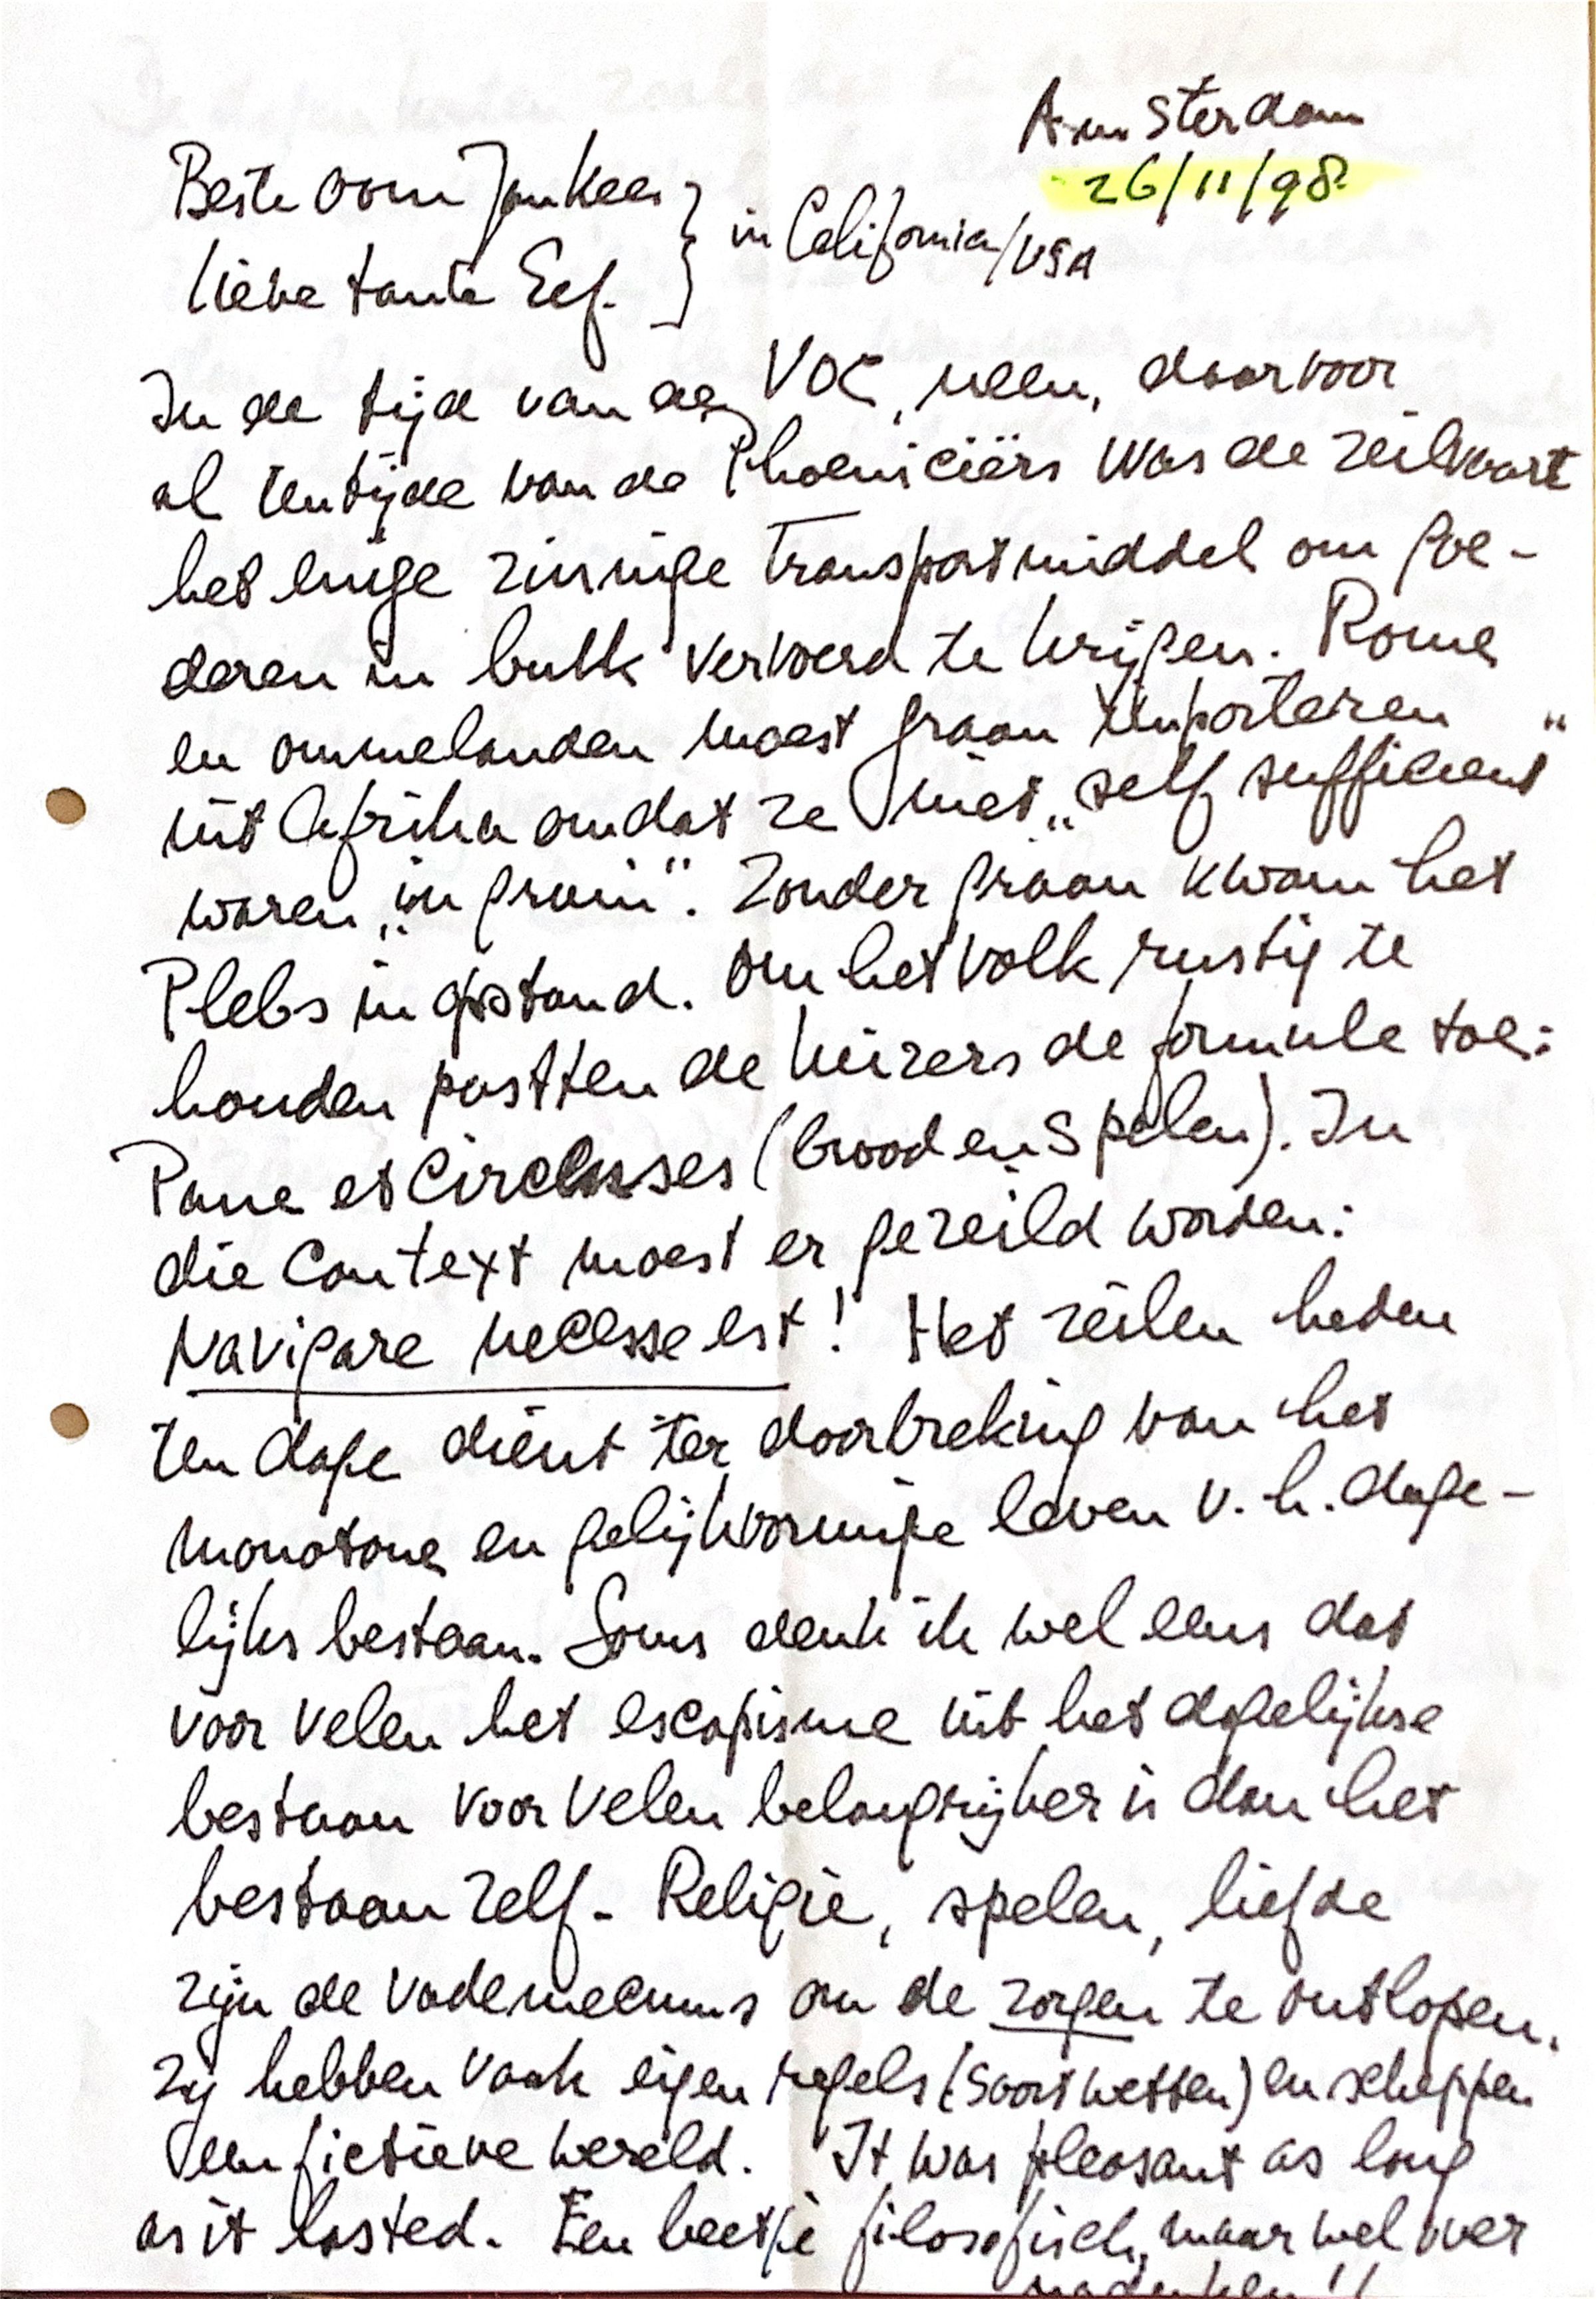 Amsterdam
26/11/98
Beste oom Jankees
lieve tante Eef.
in California/USA
In de tijd van de VOC, neen, daarvoor
al ten tijde van de Phoeniciërs was de zeilvaart
het enige zinnige transportmiddel om goe-
deren in bulk vervoerd te krijgen. Rome
en ommelanden moest graan importeren
uit Afrika omdat ze niet „self sufficient"
waren „in grain". Zonder graan kwam het
Plebs in opstand. Om het volk rustig te
houden pastten de keizers de formule toe:
Pane et Circusses (brood en spelen). In
die context moest er gezeild worden:
Navigare necesse est! Het zeilen heden
ten dage dient ter doorbreking van het
monotone en gelijkvormige leven v.h. dage-
lijks bestaan. Soms denk ik wel eens dat
voor velen het escapisme uit het dagelijkse
bestaan voor velen belangrijker is dan het
bestaan zelf. Religie, spelen, liefde
zijn de vademecums om de zorgen te ontlopen.
Zij hebben vaak eigen regels (soort wetten) en scheppen
een fictieve wereld. It was pleasant as long
as it lasted. Een beetje filosofisch, maar wel over
nadenken!!